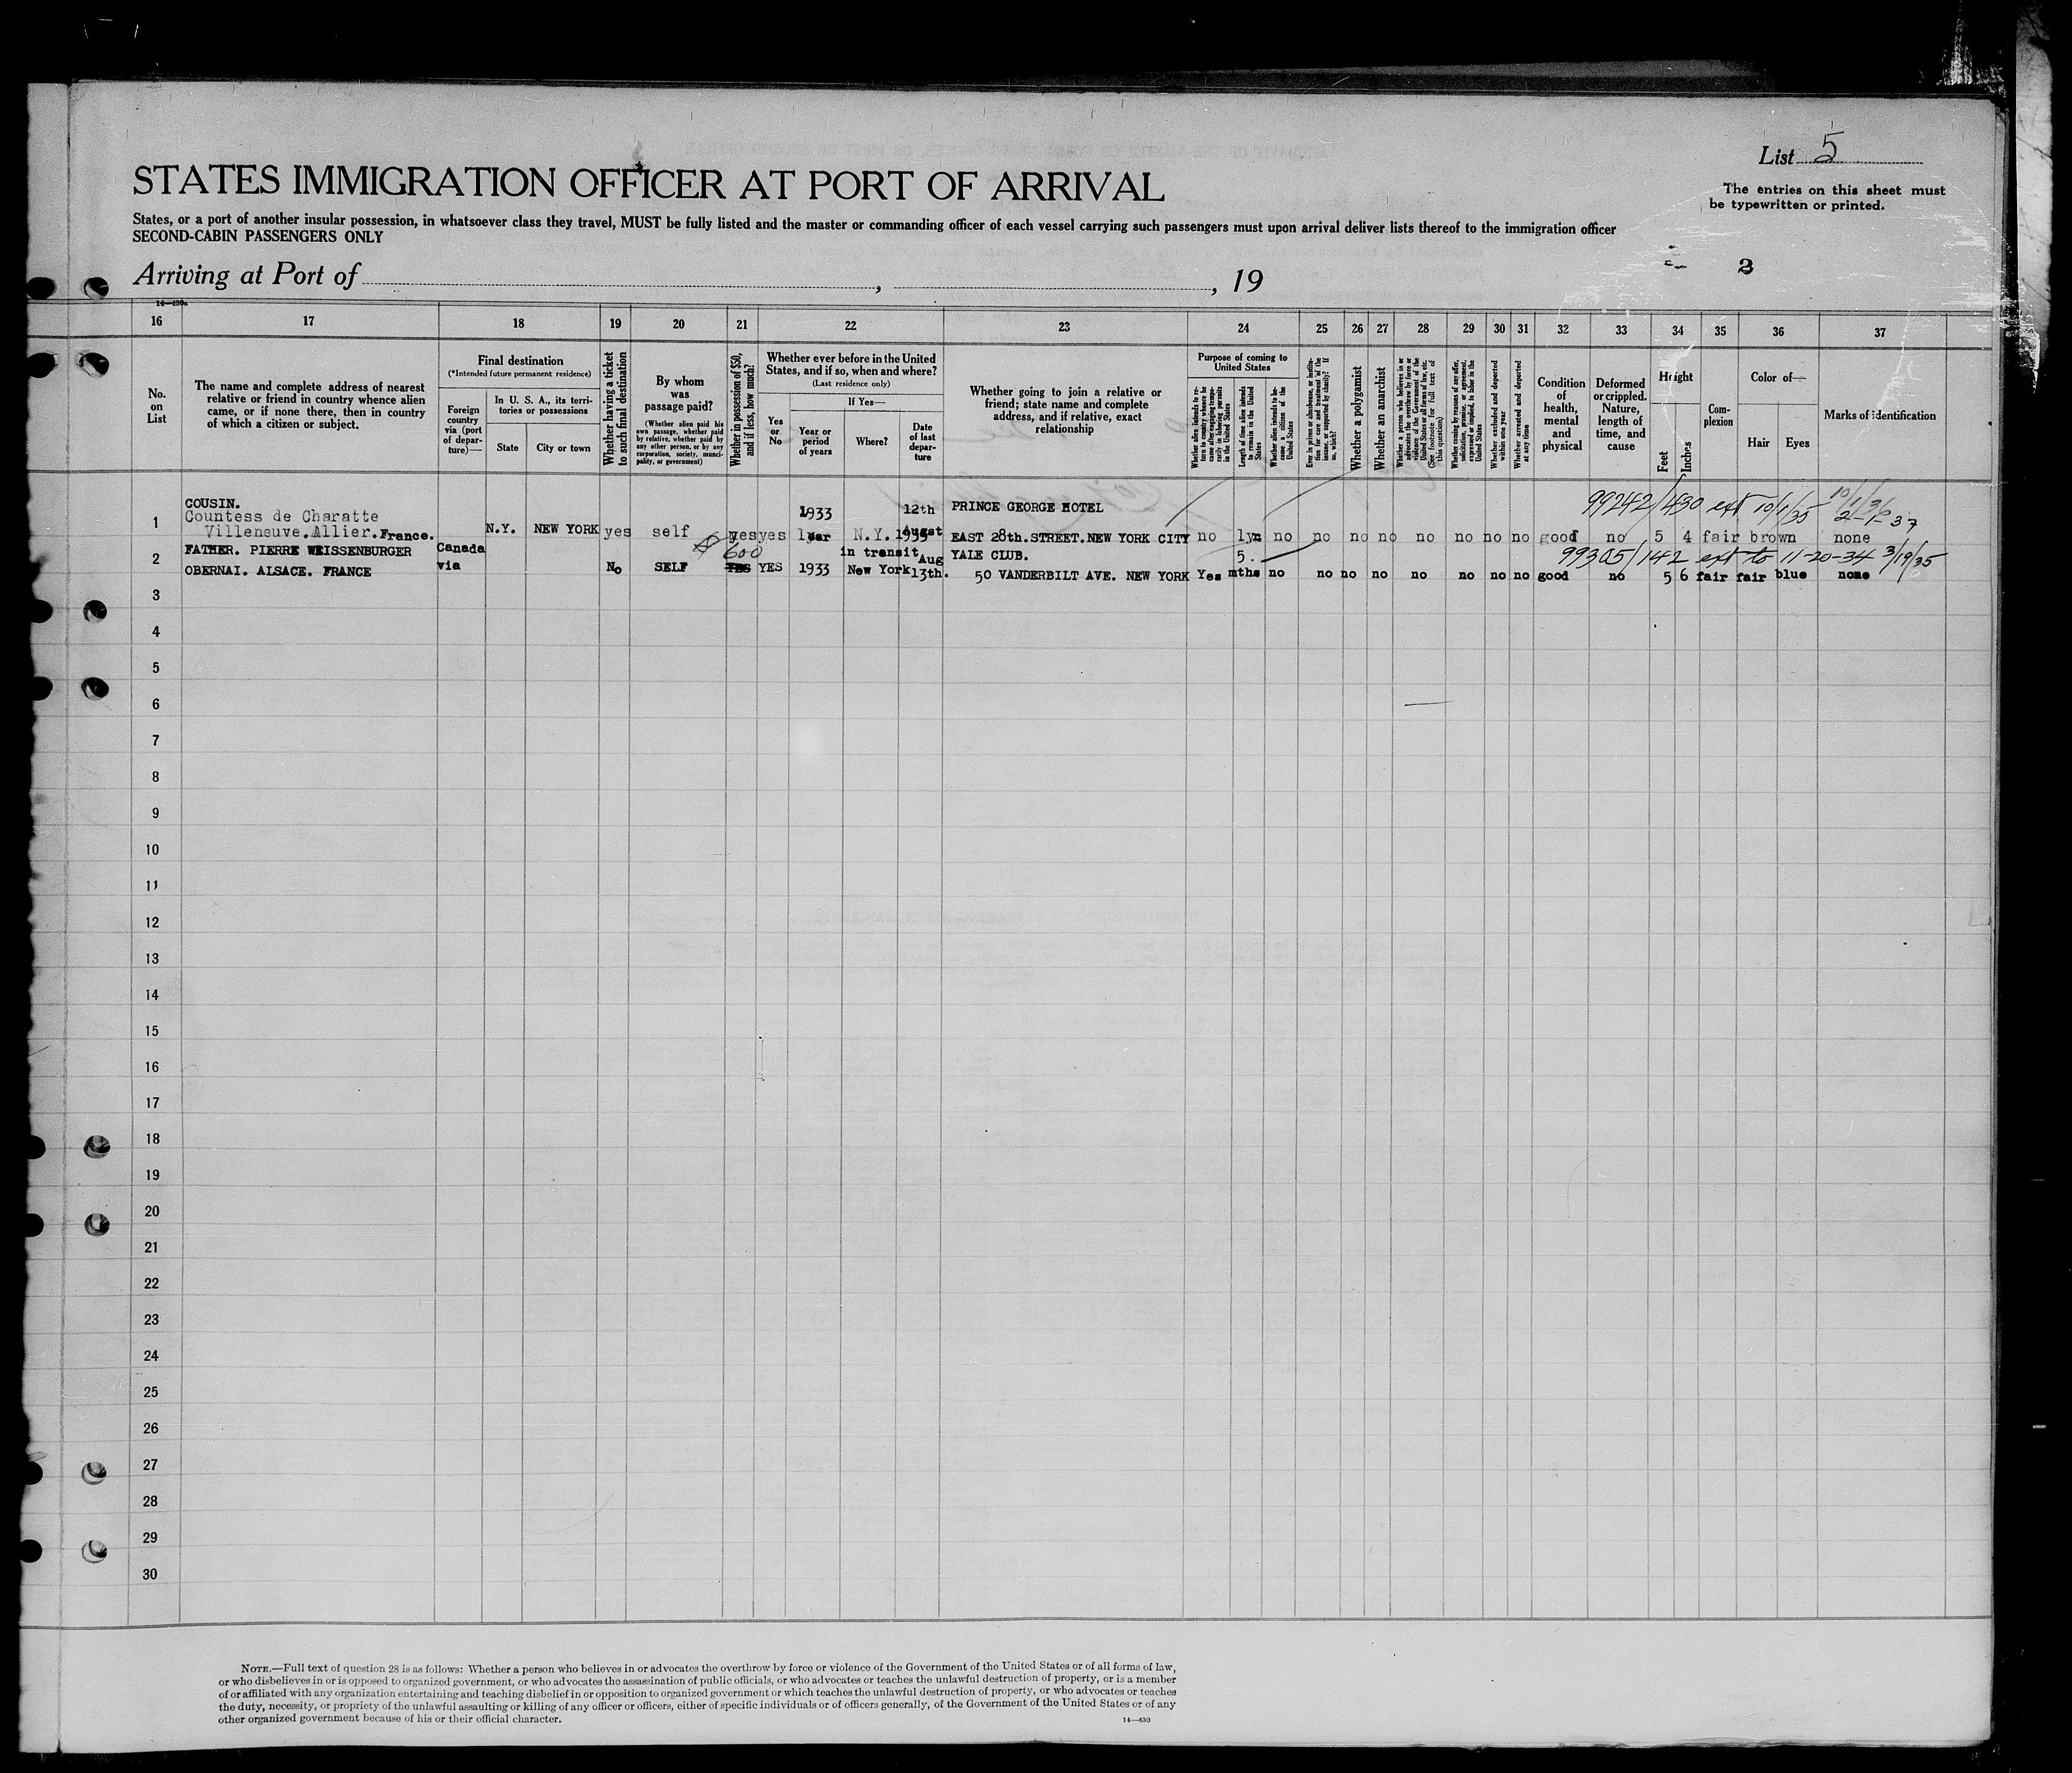 List 5
STATES IMMIGRATION OFFICER AT PORT OF ARRIVAL
The entries on this sheet must
be typewritten or printed.
States, or a port of another insular possession, in whatsoever class they travel, MUST be fully listed and the master or commanding officer of each vessel carrying such passengers must upon arrival deliver lists thereof to the immigration officer
SECOND-CABIN PASSENGERS ONLY
Arriving at Port of , , 19
2
14—430a
16 17 18 19 20 21 22 23 24 25 26 27 28 29 30 31 32 33 34 35 36 37
No. on List
The name and complete address of nearest relative or friend in country whence alien came, or if none there, then in country of which a citizen or subject.
Final destination
(*Intended future permanent residence)
Foreign country via (port of departure)—
In U. S. A., its territories or possessions
State
City or town
Whether having a ticket to such final destination
By whom was passage paid?
(Whether alien paid his own passage, whether paid by relative, whether paid by any other person, or by any corporation, society, municipality, or government)
Whether in possession of $50, and if less, how much?
Whether ever before in the United States, and if so, when and where?
(Last residence only)
Yes or No
If Yes—
Year or period of years
Where?
Date of last departure
Whether going to join a relative or friend; state name and complete address, and if relative, exact relationship
Purpose of coming to United States
Whether alien intends to return to country whence he came after engaging temporarily in laboring pursuits in the United States
Length of time alien intends to remain in the United States
Whether alien intends to become a citizen of the United States
Ever in prison or almshouse, or institution for care and treatment of the insane, or supported by charity? If so, which?
Whether a polygamist
Whether an anarchist
Whether a person who believes in or advocates the overthrow by force or violence of the Government of the United States or all forms of law, etc. (See footnote for full text of this question)
Whether coming by reasons of any offer, solicitation, promise, or agreement, expressed or implied, to labor in the United States
Whether excluded and deported within one year
Whether arrested and deported at any time
Condition of health, mental and physical
Deformed or crippled. Nature, length of time, and cause
Height
Feet
Inches
Complexion
Color of—
Hair
Eyes
Marks of identification
99242/430 ext 10/1/35
2-1-37
COUSIN. 1933 12th PRINCE GEORGE HOTEL
1 Countess de Charatte August
Villeneuve.Allier.France. N.Y. NEW YORK yes self yes yes N.Y. EAST 28th.STREET.NEW YORK CITY no no no no no no no no no good no 5 4 fair brown none
$600
99305/142 ext to 11-20-34 3/19/35
FATHER. PIERRE WEISSENBURGER Canada in transit Aug YALE CLUB. 5.
2 OBERNAI. ALSACE. FRANCE via No SELF YES YES 1933 New York 13th. 50 VANDERBILT AVE. NEW YORK Yes mths no no no no no no no no good no 5 6 fair fair blue none
3
4
5
6
7
8
9
10
11
12
13
14
15
16
17
18
19
20
21
22
23
24
25
26
27
28
29
30
NOTE.—Full text of question 28 is as follows: Whether a person who believes in or advocates the overthrow by force or violence of the Government of the United States or of all forms of law,
or who disbelieves in or is opposed to organized government, or who advocates the assassination of public officials, or who advocates or teaches the unlawful destruction of property, or is a member
of or affiliated with any organization entertaining and teaching disbelief in or opposition to organized government or which teaches the unlawful destruction of property, or who advocates or teaches
the duty, necessity, or propriety of the unlawful assaulting or killing of any officer or officers, either of specific individuals or of officers generally, of the Government of the United States or of any
other organized government because of his or their official character.
14—430